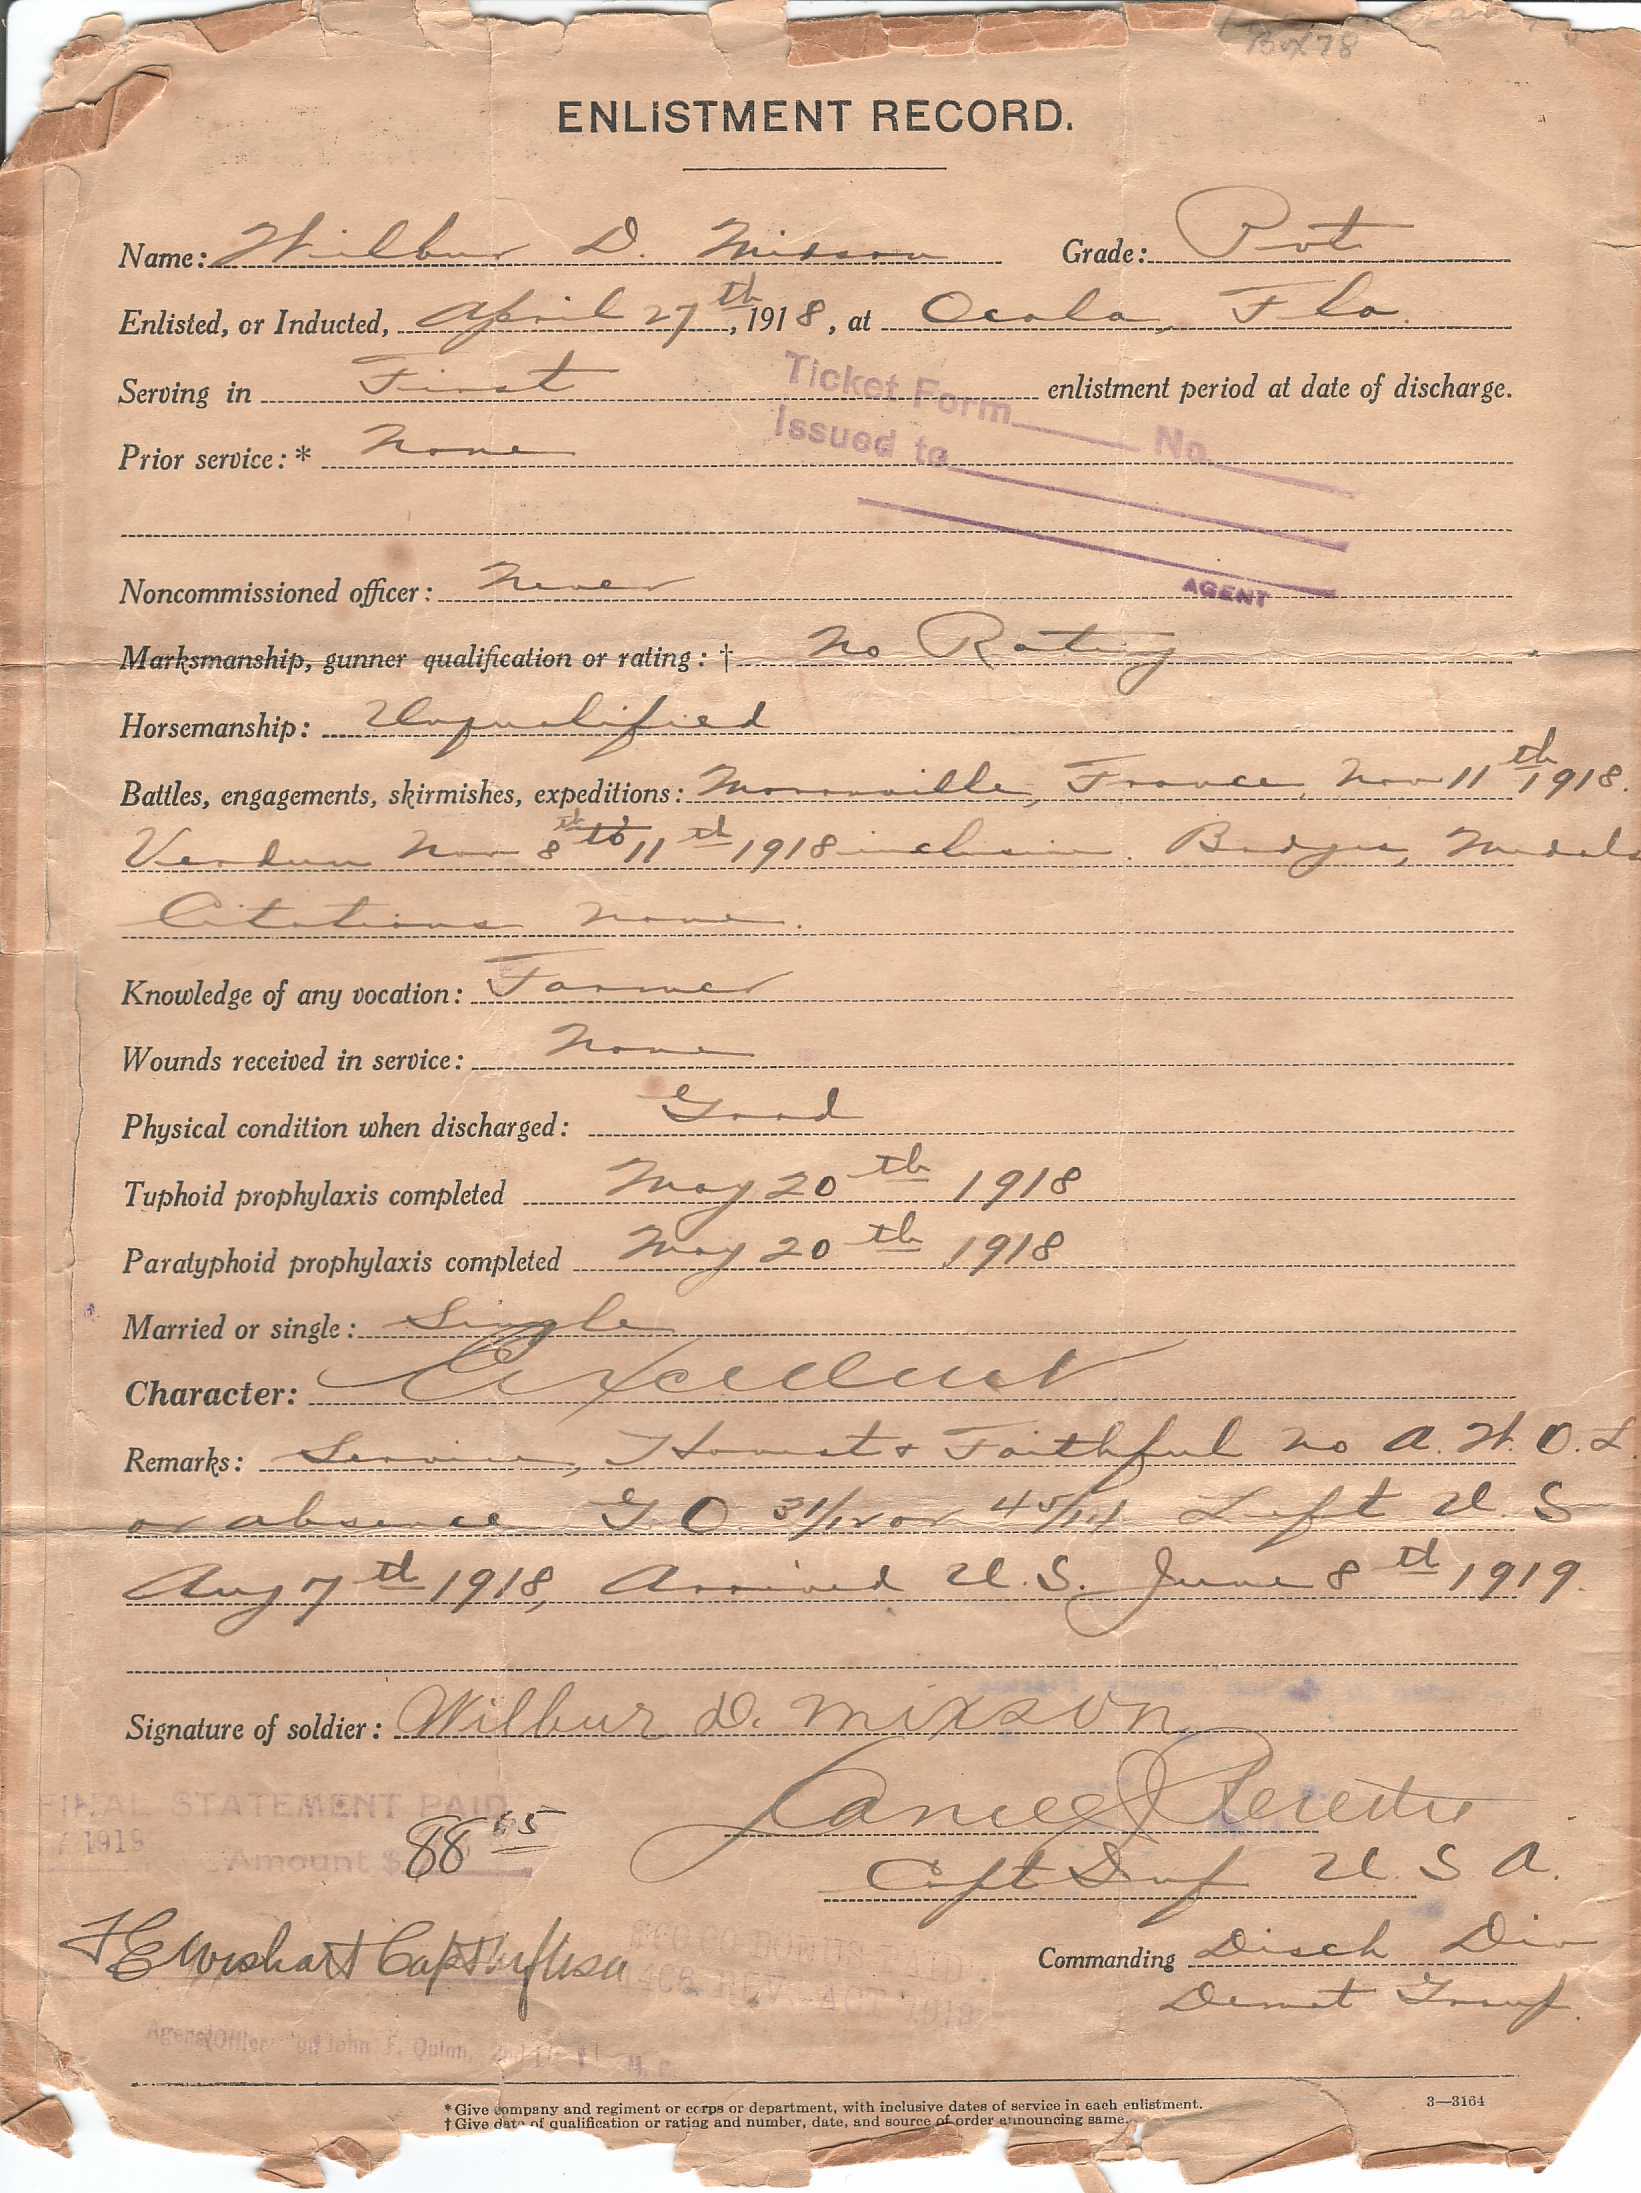 Box 78
ENLISTMENT RECORD.
Name: Wilbur D. Mixson Grade: Pvt
Enlisted, or Inducted, April 27th, 1918, at Ocala, Fla.
Serving in First enlistment period at date of discharge.
Ticket Form No
Prior service:* None
Issued to
AGENT
Noncommissioned officer: Never
Marksmanship, gunner qualification or rating: † No Rating
Horsemanship: Unqualified
Battles, engagements, skirmishes, expeditions: France, Nov 11th 1918.
Verdun Nov 8th to 11th 1918 inclusive. Badges, Medals
Citations None.
Knowledge of any vocation: Farmer
Wounds received in service: None
Physical condition when discharged: Good
Typhoid prophylaxis completed May 20th 1918
Paratyphoid prophylaxis completed May 20th 1918
Married or single: Single
Character: Excellent
Remarks: Service, Honest & Faithful No A.W.O.L.
or absence G.O. 31/12 or 45/14 Left U.S
Aug 7th 1918, Arrived U.S. June 8th 1919.
Signature of soldier: Wilbur D. Mixson
FINAL STATEMENT PAID
1919
Amount $ 88 65
Capt Inf U S A.
Capt Inf USA
Commanding Disch Div
Demob Group.
John F. Quinn,
*Give company and regiment or corps or department, with inclusive dates of service in each enlistment.
†Give date of qualification or rating and number, date, and source of order announcing same.
3—3164